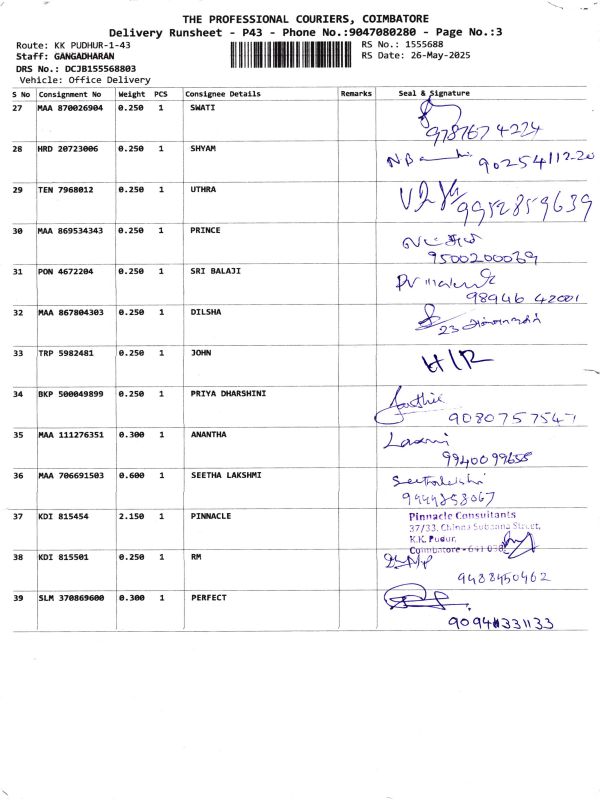 THE PROFESSIONAL COURIERS, COIMBATORE
Delivery Runsheet - P43 - Phone No.:9047080280 - Page No.:3
Route: KK PUDHUR-1-43 RS No.: 1555688
Staff: GANGADHARAN RS Date: 26-May-2025
DRS No.: DCJB155568803
Vehicle: Office Delivery
S No Consignment No Weight PCS Consignee Details Remarks Seal & Signature
27 MAA 870026904 0.250 1 SWATI
9787674224
28 HRD 20723006 0.250 1 SHYAM
29 TEN 7968012 0.250 1 UTHRA
9952859639
30 MAA 869534343 0.250 1 PRINCE
9500200039
31 PON 4672204 0.250 1 SRI BALAJI
98946 42001
32 MAA 867804303 0.250 1 DILSHA
23
33 TRP 5982481 0.250 1 JOHN H/R
34 BKP 500049899 0.250 1 PRIYA DHARSHINI
9080757547
35 MAA 111276351 0.300 1 ANANTHA Laxmi
9940099655
36 MAA 706691503 0.600 1 SEETHA LAKSHMI
9444853067
37 KDI 815454 2.150 1 PINNACLE Pinnacle Consultants
37/33, Chinna Subbana Street,
K.K. Pudur,
Coimbatore - 641 038
38 KDI 815501 0.250 1 RM
9488450462
39 SLM 370869600 0.300 1 PERFECT
9094331133